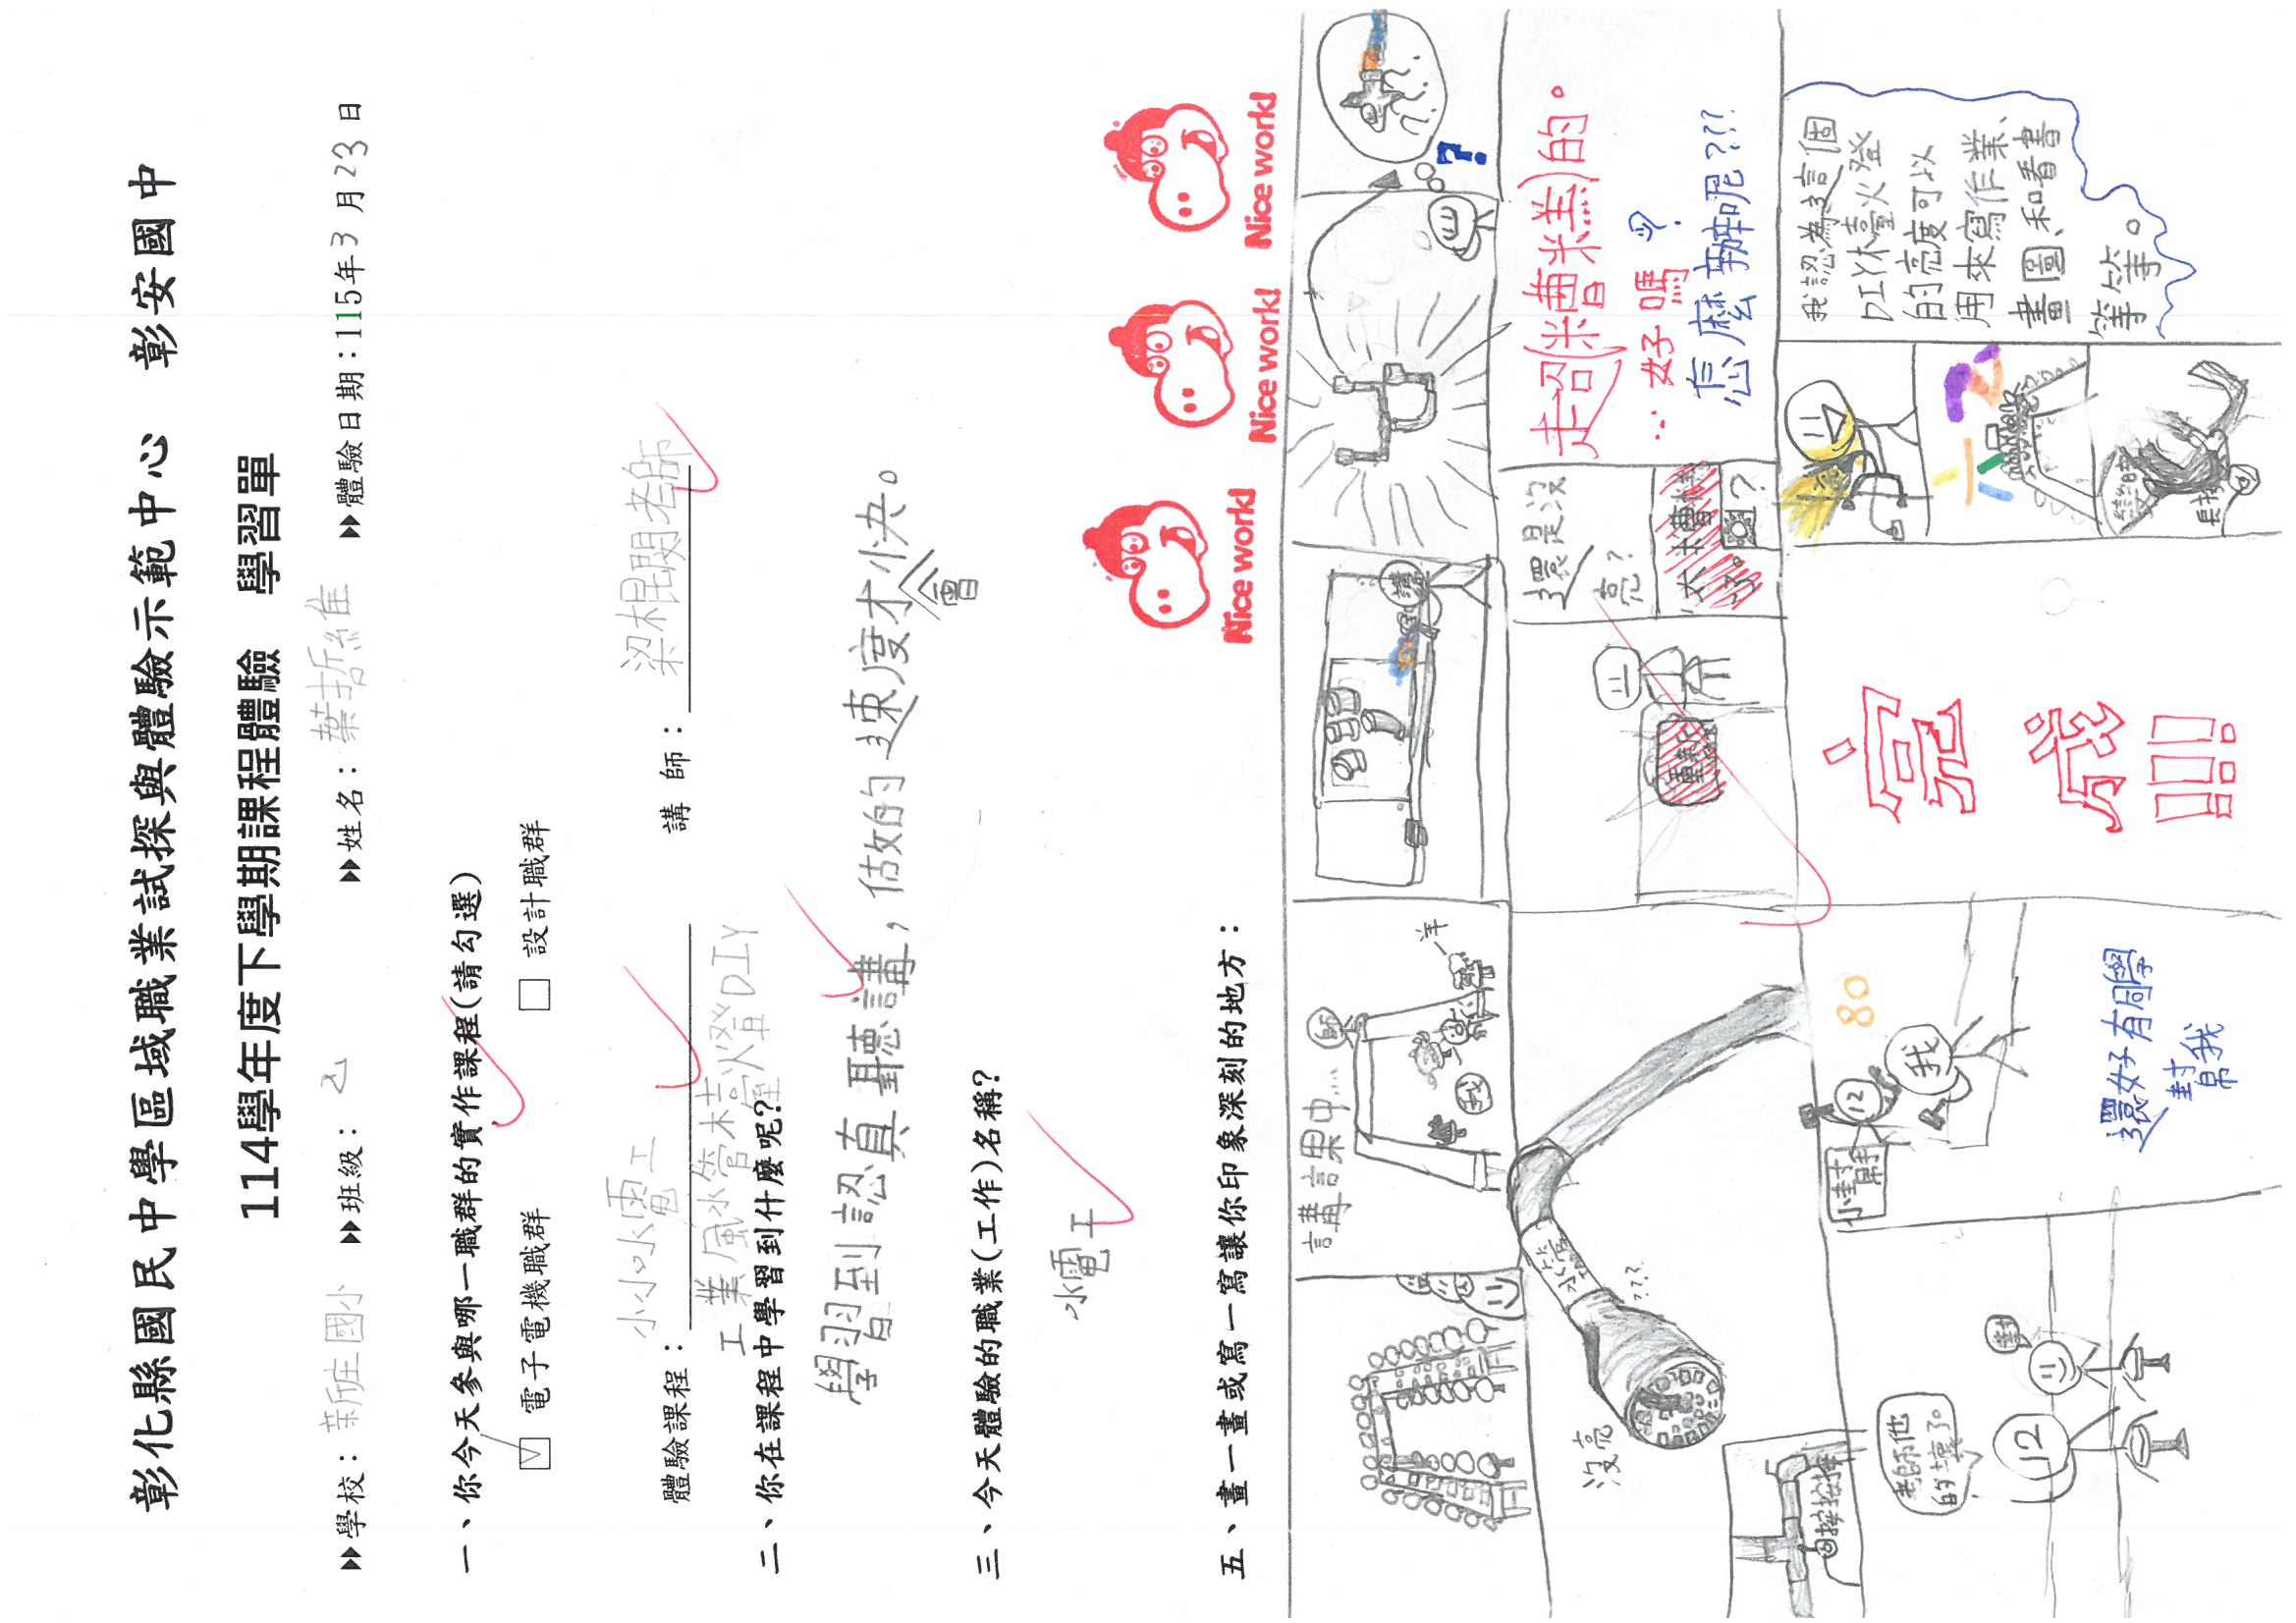 彰化縣國民中學區域職業試探與體驗示範中心 彰安國中
114學年度下學期課程體驗 學習單
▸▸學校：新庄國小 ▸▸班級： 乙 ▸▸姓名：葉哲維 ▸▸體驗日期：115年3月23日
一、你今天參與哪一職群的實作課程(請勾選)
☑ 電子電機職群 □ 設計職群
體驗課程：小小水電工 講師：梁棍閔老師
工業風水管檯燈DIY
二、你在課程中學習到什麼呢?
學習到認真聽講，估做的速度才會快。
三、今天體驗的職業(工作)名稱?
水電工
Nice work!
Nice work!
Nice work!
五、畫一畫或寫一寫讓你印象深刻的地方：
講課中...
師
我
羊
講
?
沒亮
水管
???
重新
還是沒
亮?
超(糟糕)的。
好嗎
怎麼辦呢???
老師他
的壞了。
12
對
小幫手
12
我
80
還好有同學
幫我
完成!!!
我認為這個
DIY檯燈
的亮度可以
用來寫作業、
畫圖、和看書
等等。